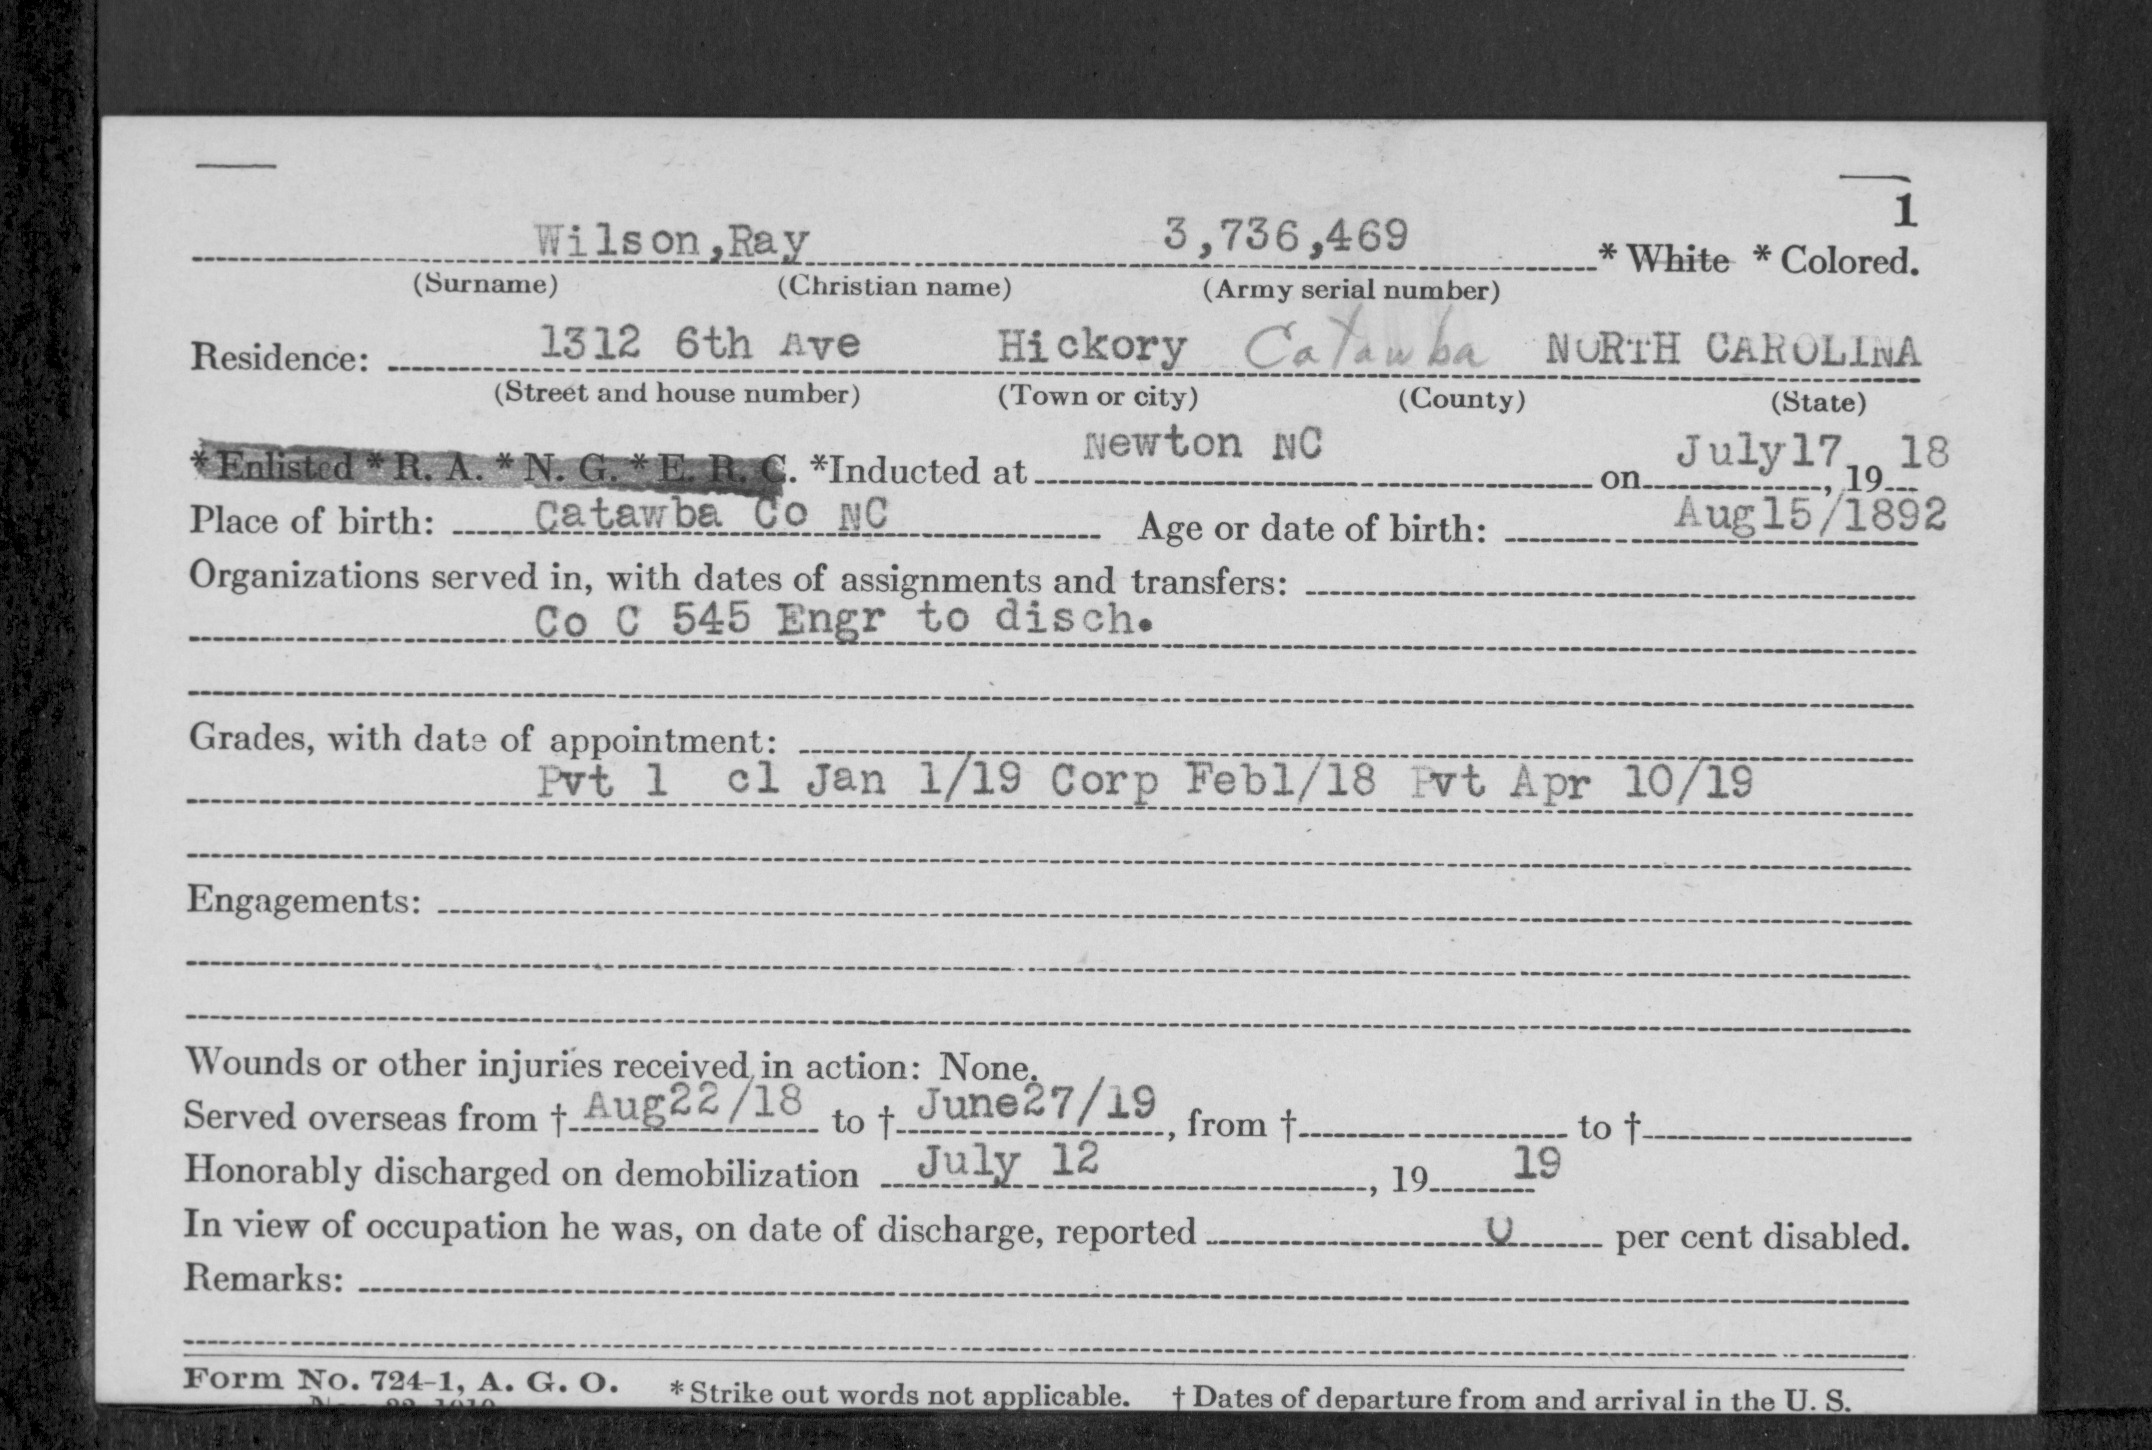 1
Wilson,Ray 3,736,469 * White * Colored.
(Surname) (Christian name) (Army serial number)
Residence: 1312 6th Ave Hickory Catawba NORTH CAROLINA
(Street and house number) (Town or city) (County) (State)
*Enlisted *R. A. *N. G. *E. R. C. *Inducted at Newton NC on July17, 19 18
Place of birth: Catawba Co NC Age or date of birth: Aug15/1892
Organizations served in, with dates of assignments and transfers:
Co C 545 Engr to disch.
Grades, with date of appointment:
Pvt 1 cl Jan 1/19 Corp Feb1/18 Pvt Apr 10/19
Engagements:
Wounds or other injuries received in action: None.
Served overseas from † Aug22/18 to † June27/19, from † to †
Honorably discharged on demobilization July 12, 19 19
In view of occupation he was, on date of discharge, reported 0 per cent disabled.
Remarks:
Form No. 724-1, A. G. O. *Strike out words not applicable. †Dates of departure from and arrival in the U. S.